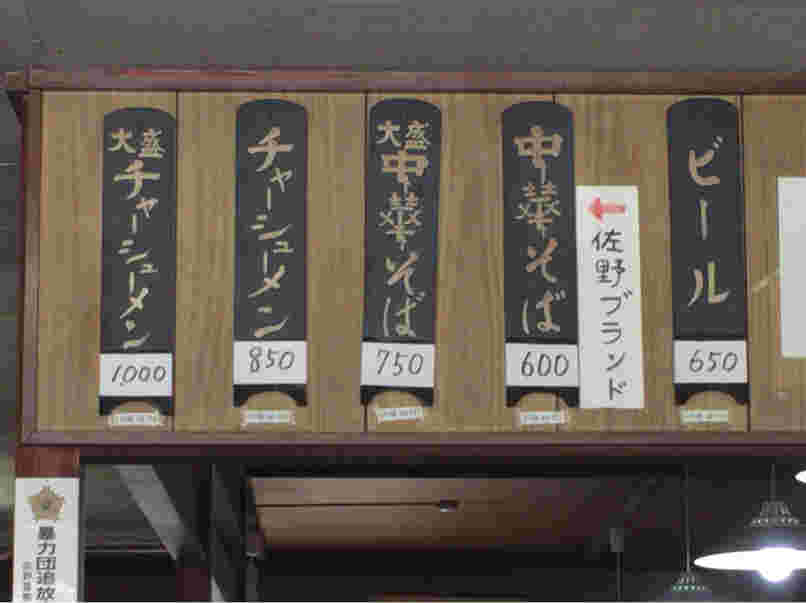 ビール
650
佐野ブランド
中華そば
600
大盛
中華そば
750
チャーシューメン
850
大盛
チャーシューメン
1,000
暴力団追放